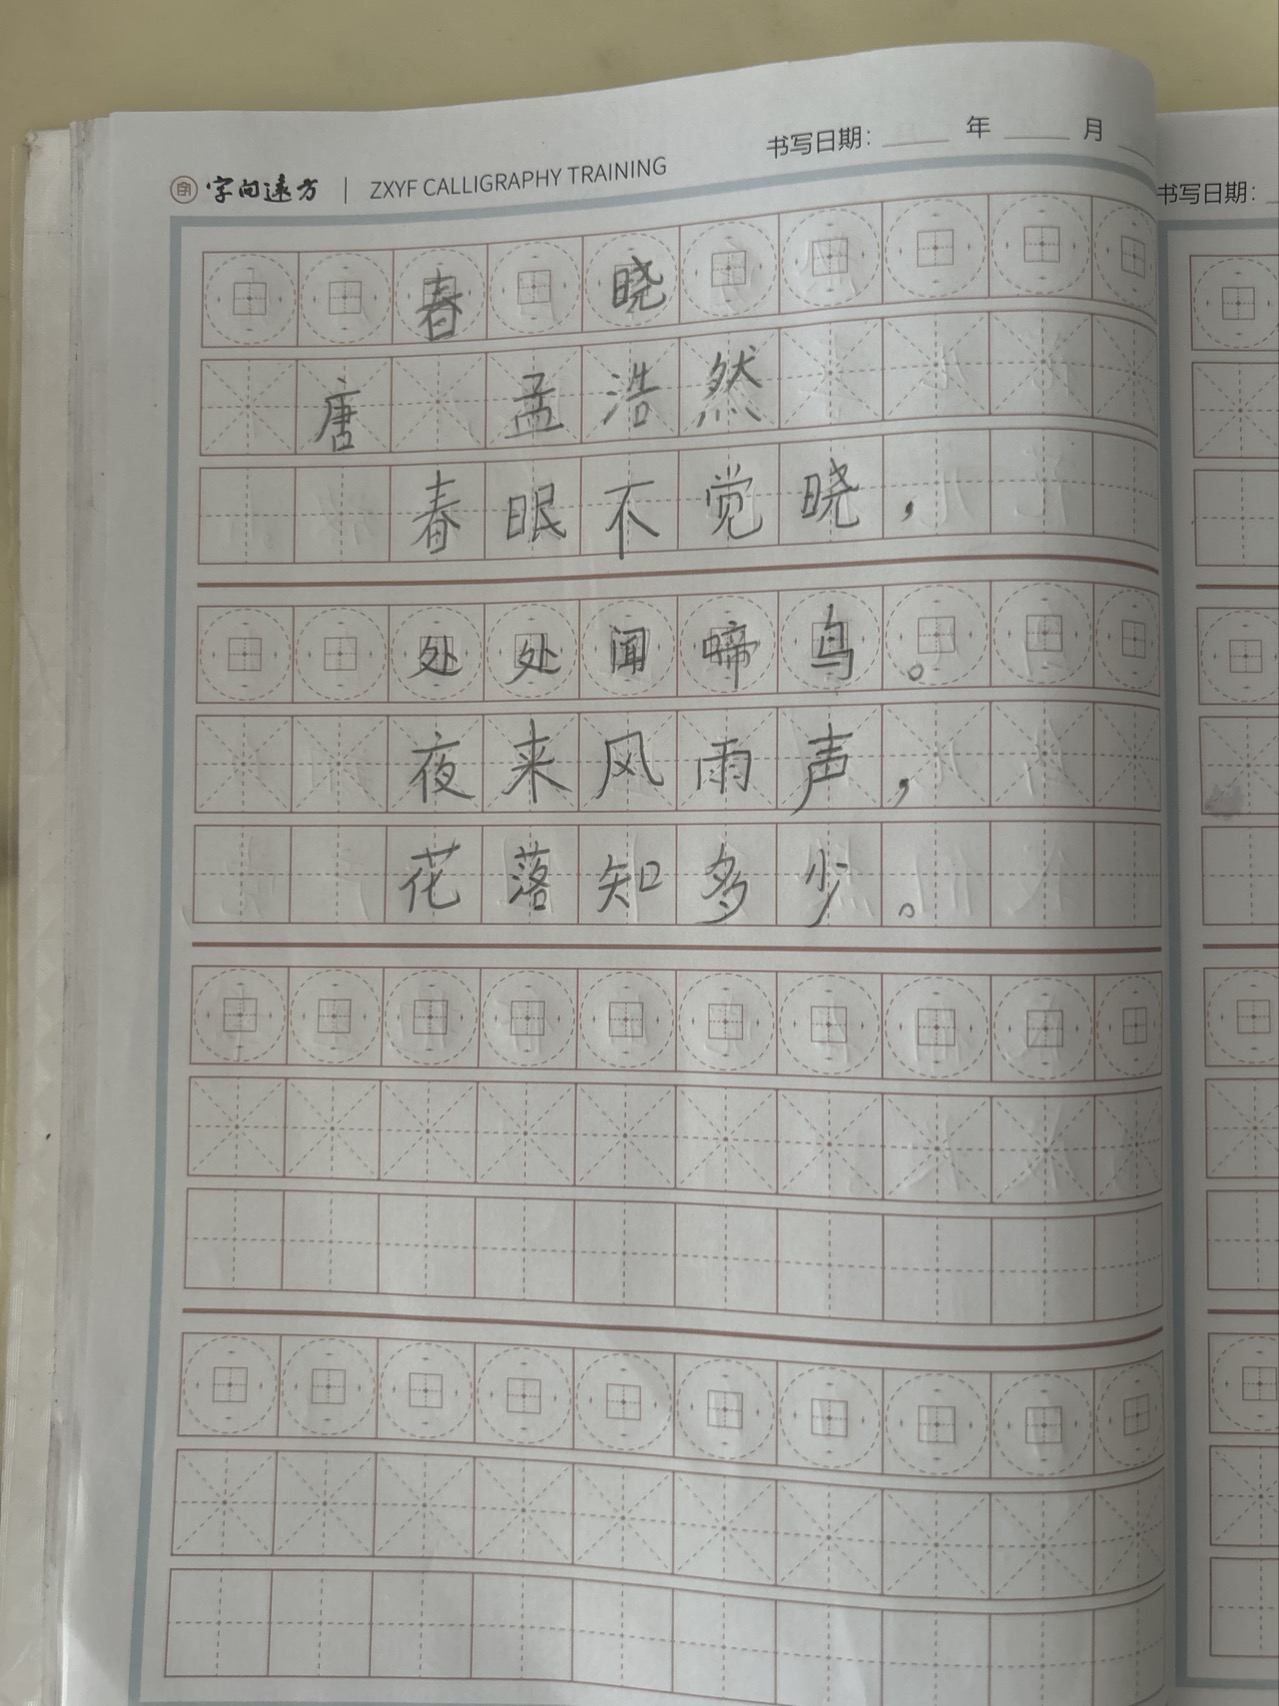 字向远方 | ZXYF CALLIGRAPHY TRAINING
书写日期: 年 月
春 晓
唐 孟浩然
春眠不觉晓，
处处闻啼鸟。
夜来风雨声，
花落知多少。
书写日期: